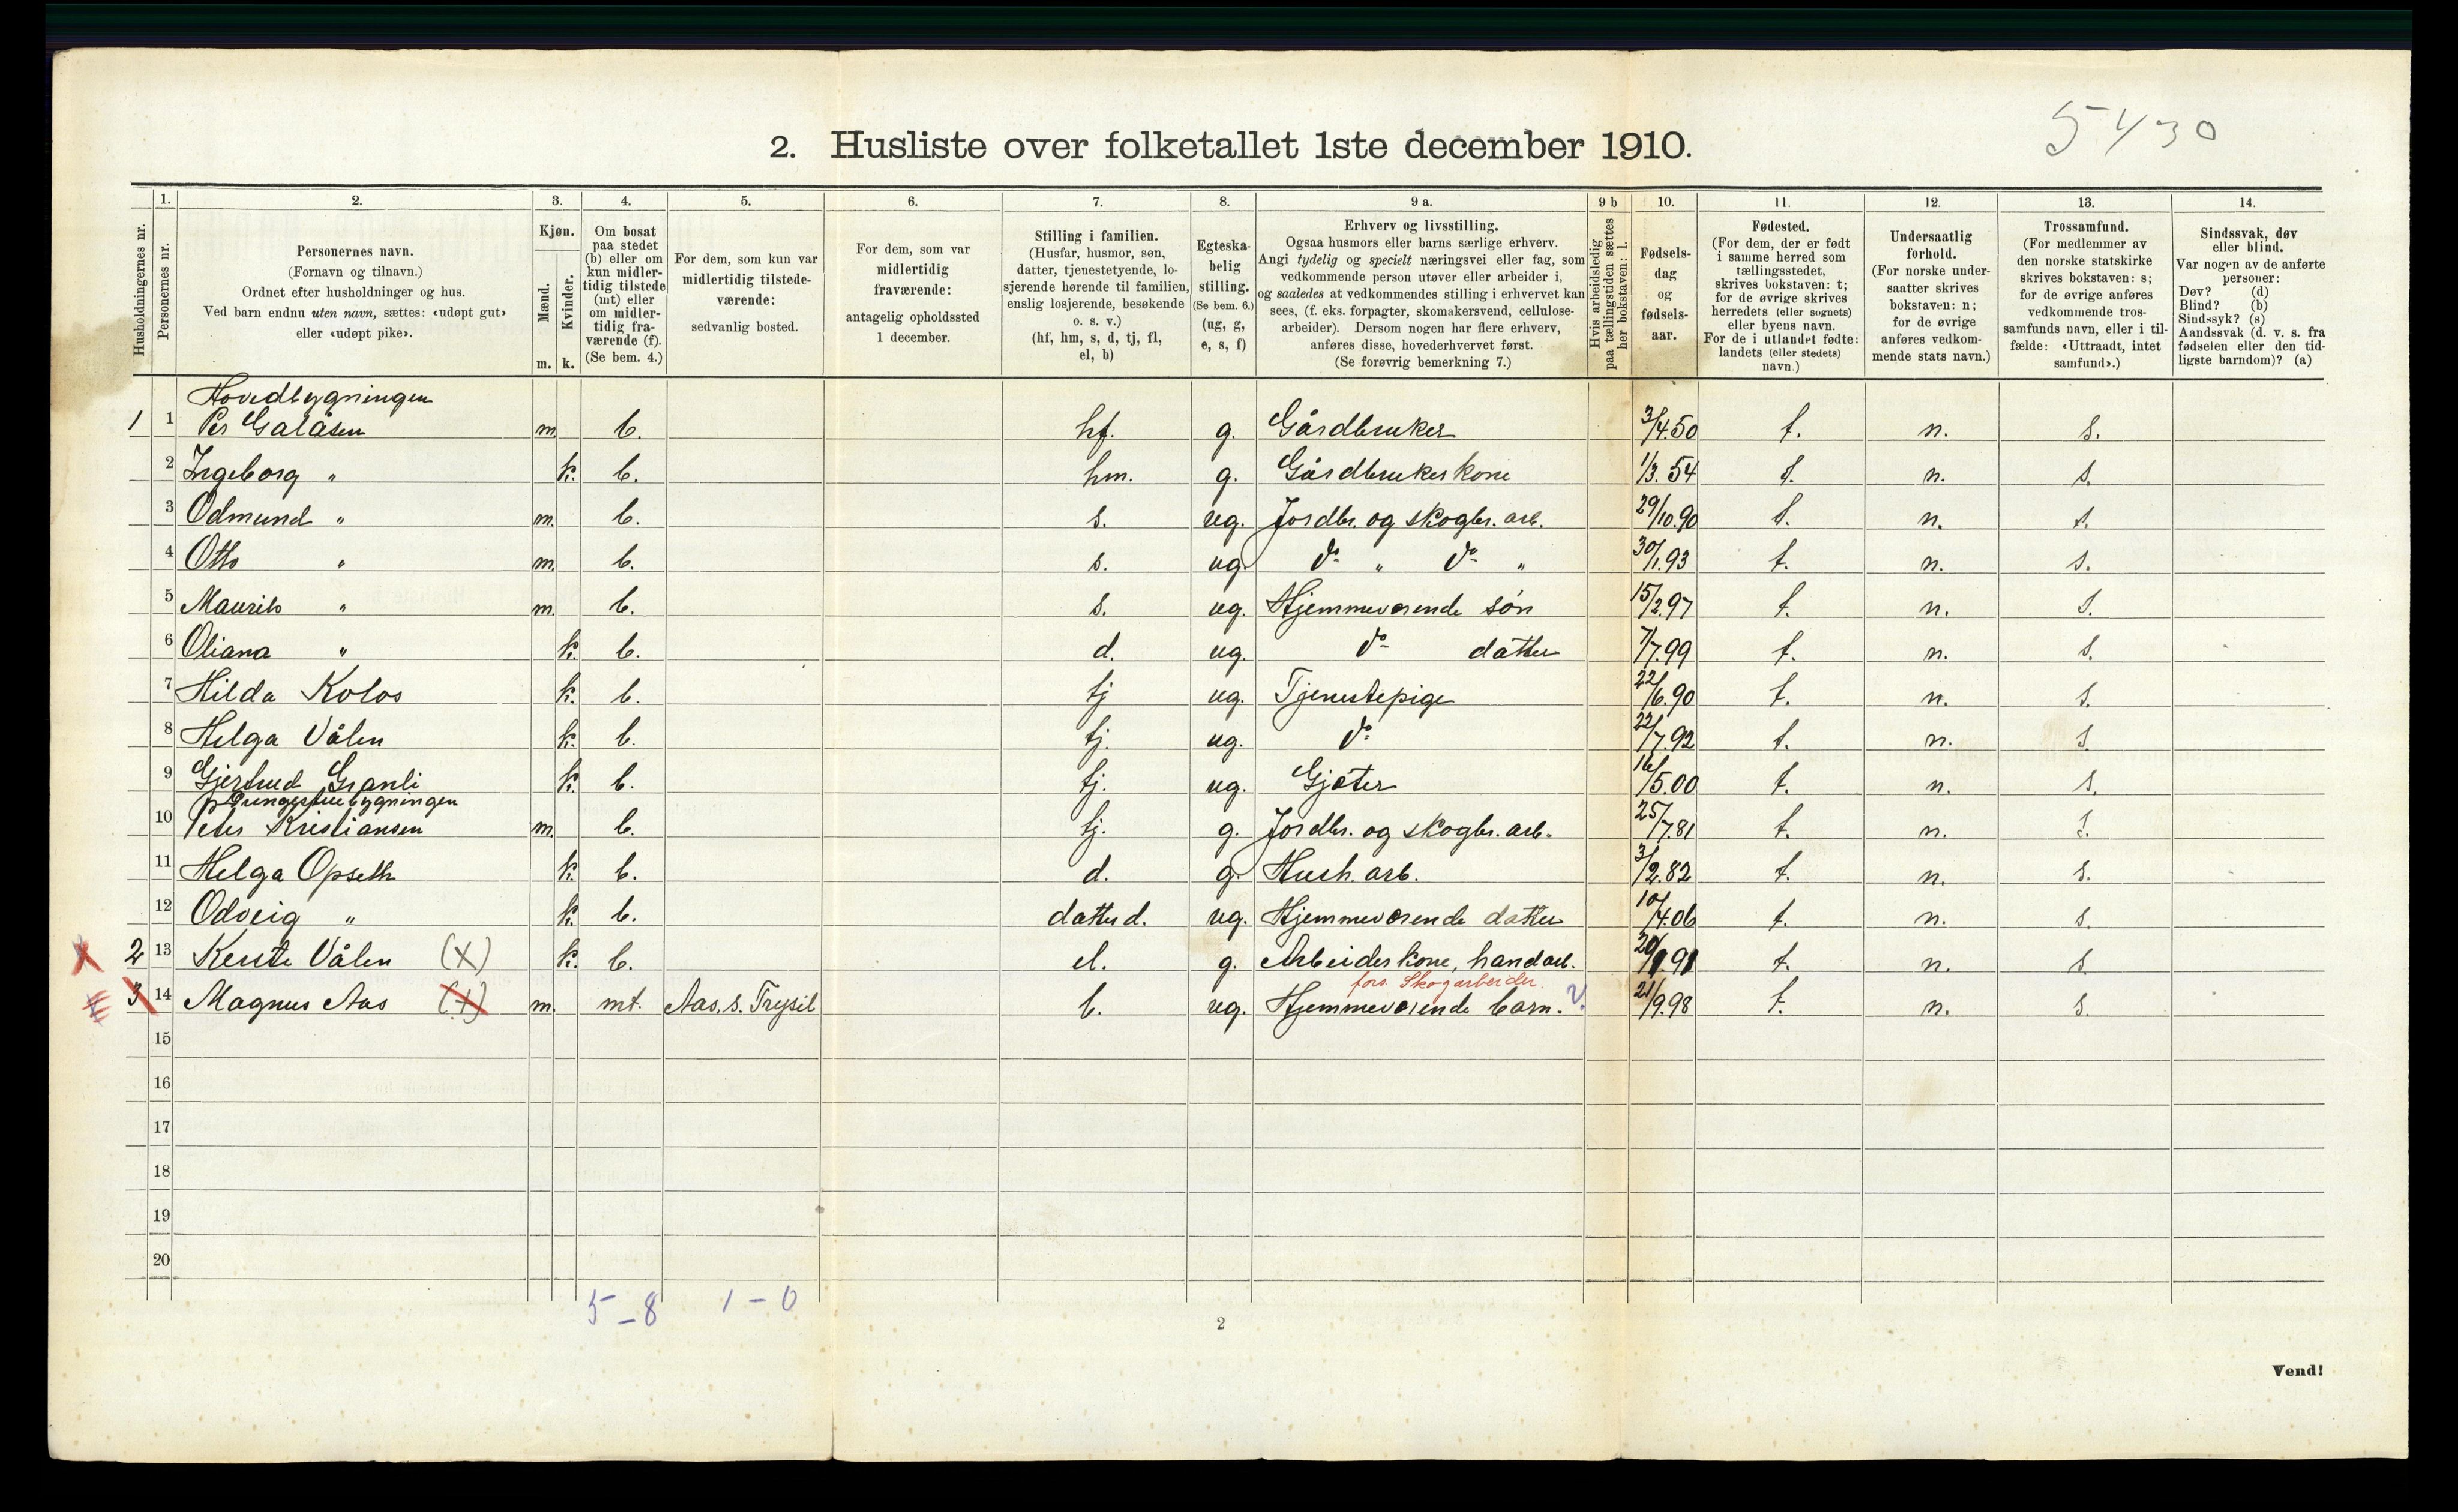 5430
2. Husliste over folketallet 1ste december 1910.
Husholdningernes nr.
1.
Personernes nr.
2.
Personernes navn.
(Fornavn og tilnavn.)
Ordnet efter husholdninger og hus.
Ved barn endnu uten navn, sættes: «udøpt gut»
eller «udøpt pike».
3.
Kjøn.
Mænd.
Kvinder.
m. k.
4.
Om bosat
paa stedet
(b) eller om
kun midler-
tidig tilstede
(mt) eller
om midler-
tidig fra-
værende (f).
(Se bem. 4.)
5.
For dem, som kun var
midlertidig tilstede-
værende:
sedvanlig bosted.
6.
For dem, som var
midlertidig
fraværende:
antagelig opholdssted
1 december.
7.
Stilling i familien.
(Husfar, husmor, søn,
datter, tjenestetyende, lo-
sjerende hørende til familien,
enslig losjerende, besøkende
o. s. v.)
(hf, hm, s, d, tj, fl,
el, b)
8.
Egteska-
belig
stilling.
(Se bem. 6.)
(ug, g,
e, s, f)
9 a.
Erhverv og livsstilling.
Ogsaa husmors eller barns særlige erhverv.
Angi tydelig og specielt næringsvei eller fag, som
vedkommende person utøver eller arbeider i,
og saaledes at vedkommendes stilling i erhvervet kan
sees, (f. eks. forpagter, skomakersvend, cellulose-
arbeider). Dersom nogen har flere erhverv,
anføres disse, hovederhvervet først.
(Se forøvrig bemerkning 7.)
9 b
Hvis arbeidsledig
paa tællingstiden sættes
her bokstaven: l.
10.
Fødsels-
dag
og
fødsels-
aar.
11.
Fødested.
(For dem, der er født
i samme herred som
tællingsstedet,
skrives bokstaven: t;
for de øvrige skrives
herredets (eller sognets)
eller byens navn.
For de i utlandet fødte:
landets (eller stedets)
navn.)
12.
Undersaatlig
forhold.
(For norske under-
saatter skrives
bokstaven: n;
for de øvrige
anføres vedkom-
mende stats navn.)
13.
Trossamfund.
(For medlemmer av
den norske statskirke
skrives bokstaven: s;
for de øvrige anføres
vedkommende tros-
samfunds navn, eller i til-
fælde: «Uttraadt, intet
samfund».)
14.
Sindssvak, døv
eller blind.
Var nogen av de anførte
personer:
Døv? (d)
Blind? (b)
Sindssyk? (s)
Aandssvak (d. v. s. fra
fødselen eller den tid-
ligste barndom)? (a)
Hovedbygningen
1 1 Per Galåsen m. b. hf. g. Gårdbruker 3/4.50 t. n. s.
2 Ingeborg " k. b. hm. g. Gårdbrukerkone 1/3.54 t. n. s.
3 Odmund " m. b. s. ug. Jordbr. og skogbr. arb. 29/10.90 t. n. s.
4 Otto " m. b. s. ug. do " do " 30/1.93 t. n. s.
5 Maurits " m. b. s. ug. Hjemmeværende søn 15/2.97 t. n. s.
6 Oliana " k. b. d. ug. do datter 7/7.99 t. n. s.
7 Hilda Kolos k. b. tj ug. Tjenestepige 22/6.90 t. n. s.
8 Helga Vålen k. b. tj. ug. do 22/7.92 t. n. s.
9 Gjertrud Granli k. b. tj. ug. Gjæter 16/5.00 t. n. s.
10 Peter Kristiansen m. b. tj. g. Jordbr. og skogbr. arb. 25/7.81 t. n. s.
11 Helga Opseth k. b. d. g. Hush. arb. 3/2.82 t. n. s.
12 Odveig " k. b. datter d. ug. Hjemmeværende datter 10/4.06 t. n. s.
x 2 13 Kerste Vålen (X) k. b. el. g. Arbeiderkone, handarb. t. n. s.
fors. Skogarbeider.
3 14 Magnus Aas (X) m. mt. Aas, s. Trysil b. ug. Hjemmeværende barn. ? 21/9.98 t. n. s.
15
16
17
18
19
20
5 - 8 1 - 0
2
Vend!